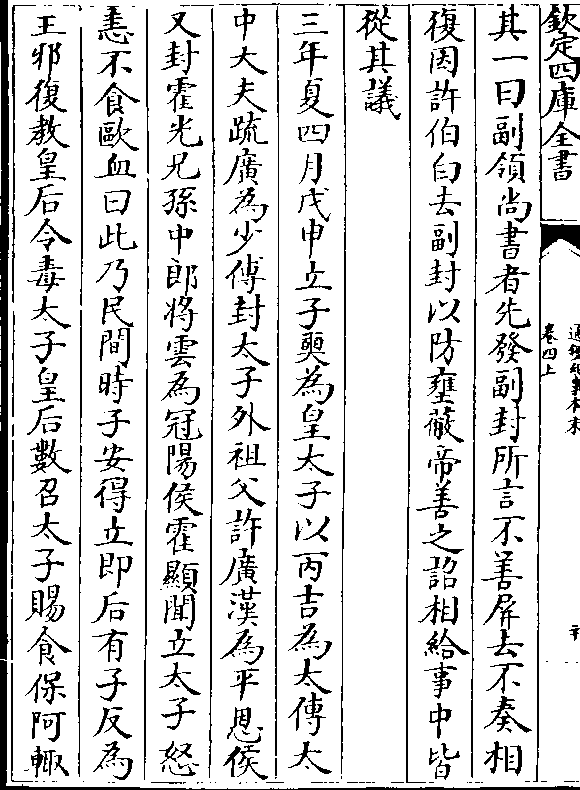 欽定四庫全書
卷四上
其一曰副領尚書者先發副封所言不善屏去不奏相
復因許伯白去副封以防壅蔽帝善之詔相給事中皆
從其議
三年夏四月戊申立子奭為皇太子以丙吉為太傅太
中大夫疏廣為少傅封太子外祖父許廣漢為平恩侯
又封霍光兄孫中郎將雲為冠陽侯霍顯聞立太子怒
恚不食歐血曰此乃民間時子安得立即后有子反為
王邪復教皇后令毒太子皇后數召太子賜食保阿輙